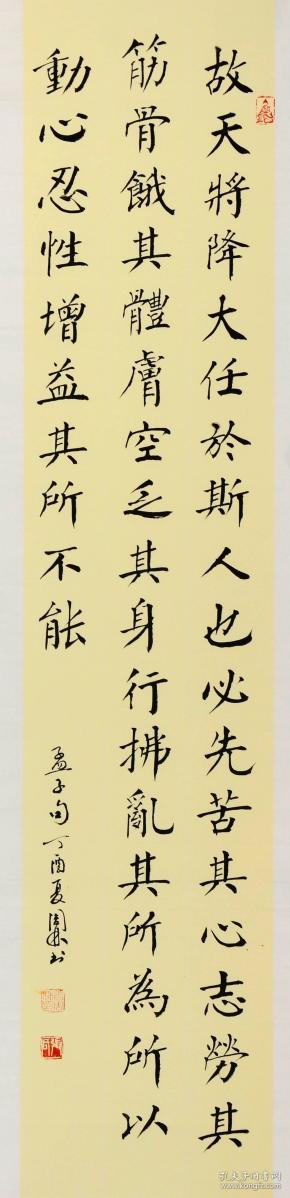 故天將降大任於斯人也必先苦其心志勞其
筋骨餓其體膚空乏其身行拂亂其所為所以
動心忍性增益其所不能
孟子句丁酉夏周林书
孔夫子旧书网